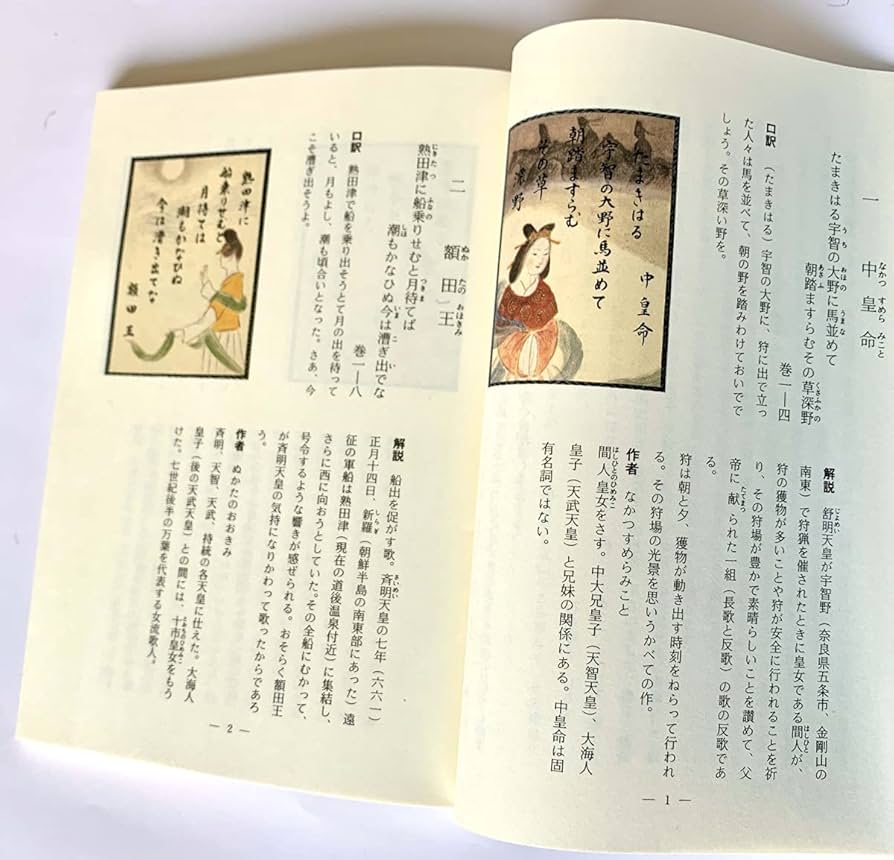 一 中皇命
たまきはる宇智の大野に馬並めて
朝踏ますらむその草深野
巻一―四
口訳 (たまきはる)宇智の大野に、狩に出で立っ
た人々は馬を並べて、朝の野を踏みわけておいでで
しょう。その草深い野を。
たまきはる
宇智の大野に馬並めて
朝踏ますらむ
その草
深野
中皇命
解説 舒明天皇が宇智野(奈良県五条市、金剛山の
南東)で狩猟を催されたときに皇女である間人が、
狩の獲物が多いことや狩が安全に行われることを祈
り、その狩場が豊かで素晴らしいことを讃めて、父
帝に献られた一組(長歌と反歌)の歌の反歌であ
る。
狩は朝と夕、獲物が動き出す時刻をねらって行われ
る。その狩場の光景を思いうかべての作。
作者 なかつすめらみこと
間人皇女をさす。中大兄皇子(天智天皇)、大海人
皇子(天武天皇)と兄妹の関係にある。中皇命は固
有名詞ではない。
― 1 ―
二 額田王
熟田津に船乗りせむと月待てば
潮もかなひぬ今は漕ぎ出でな
巻一―八
口訳 熟田津で船を乗り出そうとて月の出を待って
いると、月もよし、潮も頃合いとなった。さあ、今
こそ漕ぎ出そうよ。
熟田津に
船乗りせむと
月待てば
潮もかなひぬ
今は漕ぎ出でな
額田王
解説 船出を促がす歌。斉明天皇の七年(六六一)
正月十四日、新羅(朝鮮半島の南東部にあった)遠
征の軍船は熟田津(現在の道後温泉付近)に集結し、
さらに西に向おうとしていた。その全船にむかって、
号令するような響きが感ぜられる。おそらく額田王
が斉明天皇の気持になりかわって歌ったからであろ
う。
作者 ぬかたのおおきみ
斉明、天智、天武、持統の各天皇に仕えた。大海人
皇子(後の天武天皇)との間には、十市皇女をもう
けた。七世紀後半の万葉を代表する女流歌人。
― 2 ―